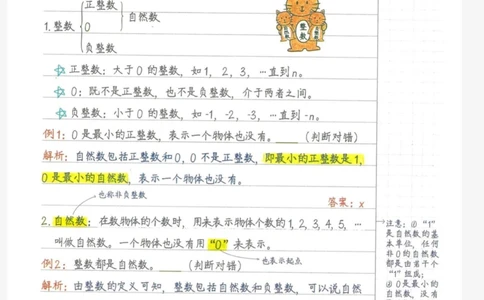 正整数
自然数
1.整数
0
负整数
整数
正整数：大于0的整数，如1，2，3，…直到n。
0：既不是正整数，也不是负整数，介于两者之间。
负整数：小于0的整数，如-1，-2，-3，…直到-n。
例1：0是最小的正整数，表示一个物体也没有。____（判断对错）
解析：自然数包括正整数和0，0不是正整数，即最小的正整数是1，
0是最小的自然数，表示一个物体也没有。
答案：x
也称非负整数
2.自然数：在数物体的个数时，用来表示物体个数的1,2,3,4,5,…
叫做自然数。一个物体也没有用“0”来表示。
也表示起点
例2：整数都是自然数。____（判断对错）
解析：由整数的定义可知，整数包括自然数和负整数，可以说自然
注意：①“1”
是自然数的基
本单位，任何
非0的自然数
都是由若干个
“1”组成；
②0是最小的
自然数，没有